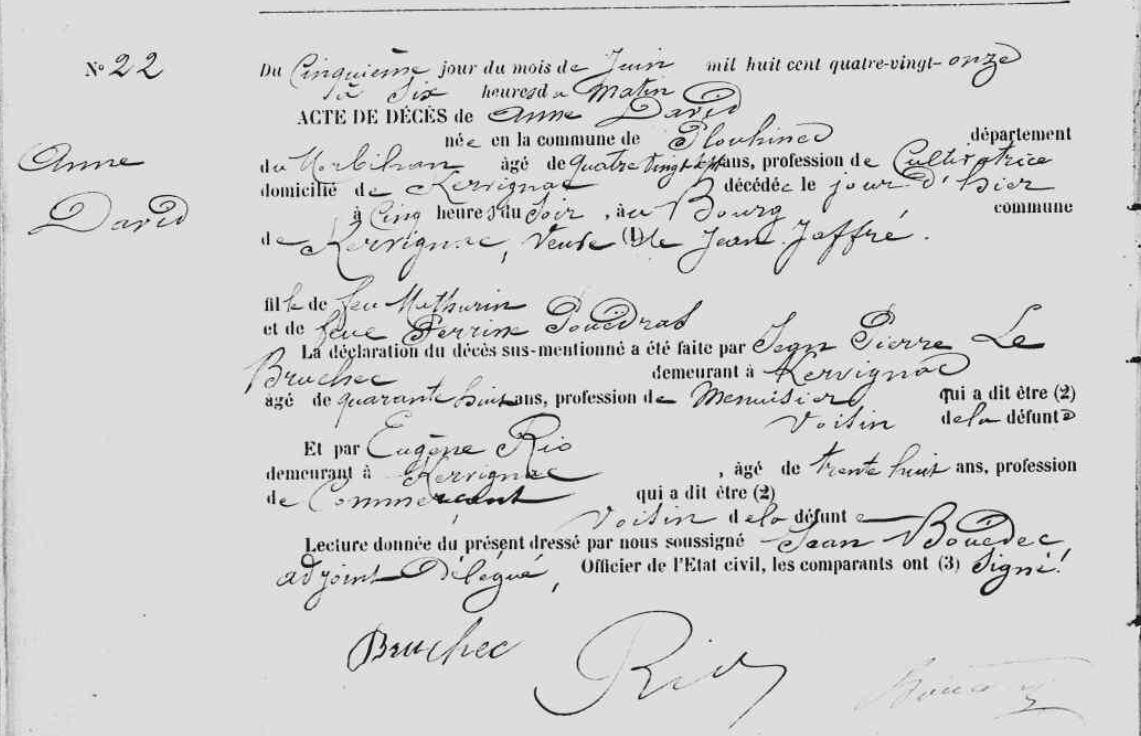 N° 22
Du Cinquième jour du mois de Juin mil huit cent quatre-vingt-onze
à Six heures du Matin
ACTE DE DÉCÈS de Anne David
née en la commune de Plouhinec département
du Morbihan âgé de quatre vingt ans, profession de Cultivatrice
domicilié de Kervignac décédée le jour d'hier
à Cinq heures du Soir, au Bourg commune
de Kervignac, Veuve (1) de Jean Jaffré.
Anne
David
fille de feu Mathurin
et de feue Perrine Pouëdras
La déclaration du décès sus-mentionné a été faite par Jean Pierre Le
Bruchec demeurant à Kervignac
âgé de quarante huit ans, profession de Menuisier qui a dit être (2)
Voisin de la défunte
Et par Eugène Rio
demeurant à Kervignac, âgé de trente huit ans, profession
de Commerçant qui a dit être (2)
Voisin de la défunte
Lecture donnée du présent dressé par nous soussigné Jean Bouëdec
adjoint Délégué, Officier de l'Etat civil, les comparants ont (3) Signé.
Bruchec Rio